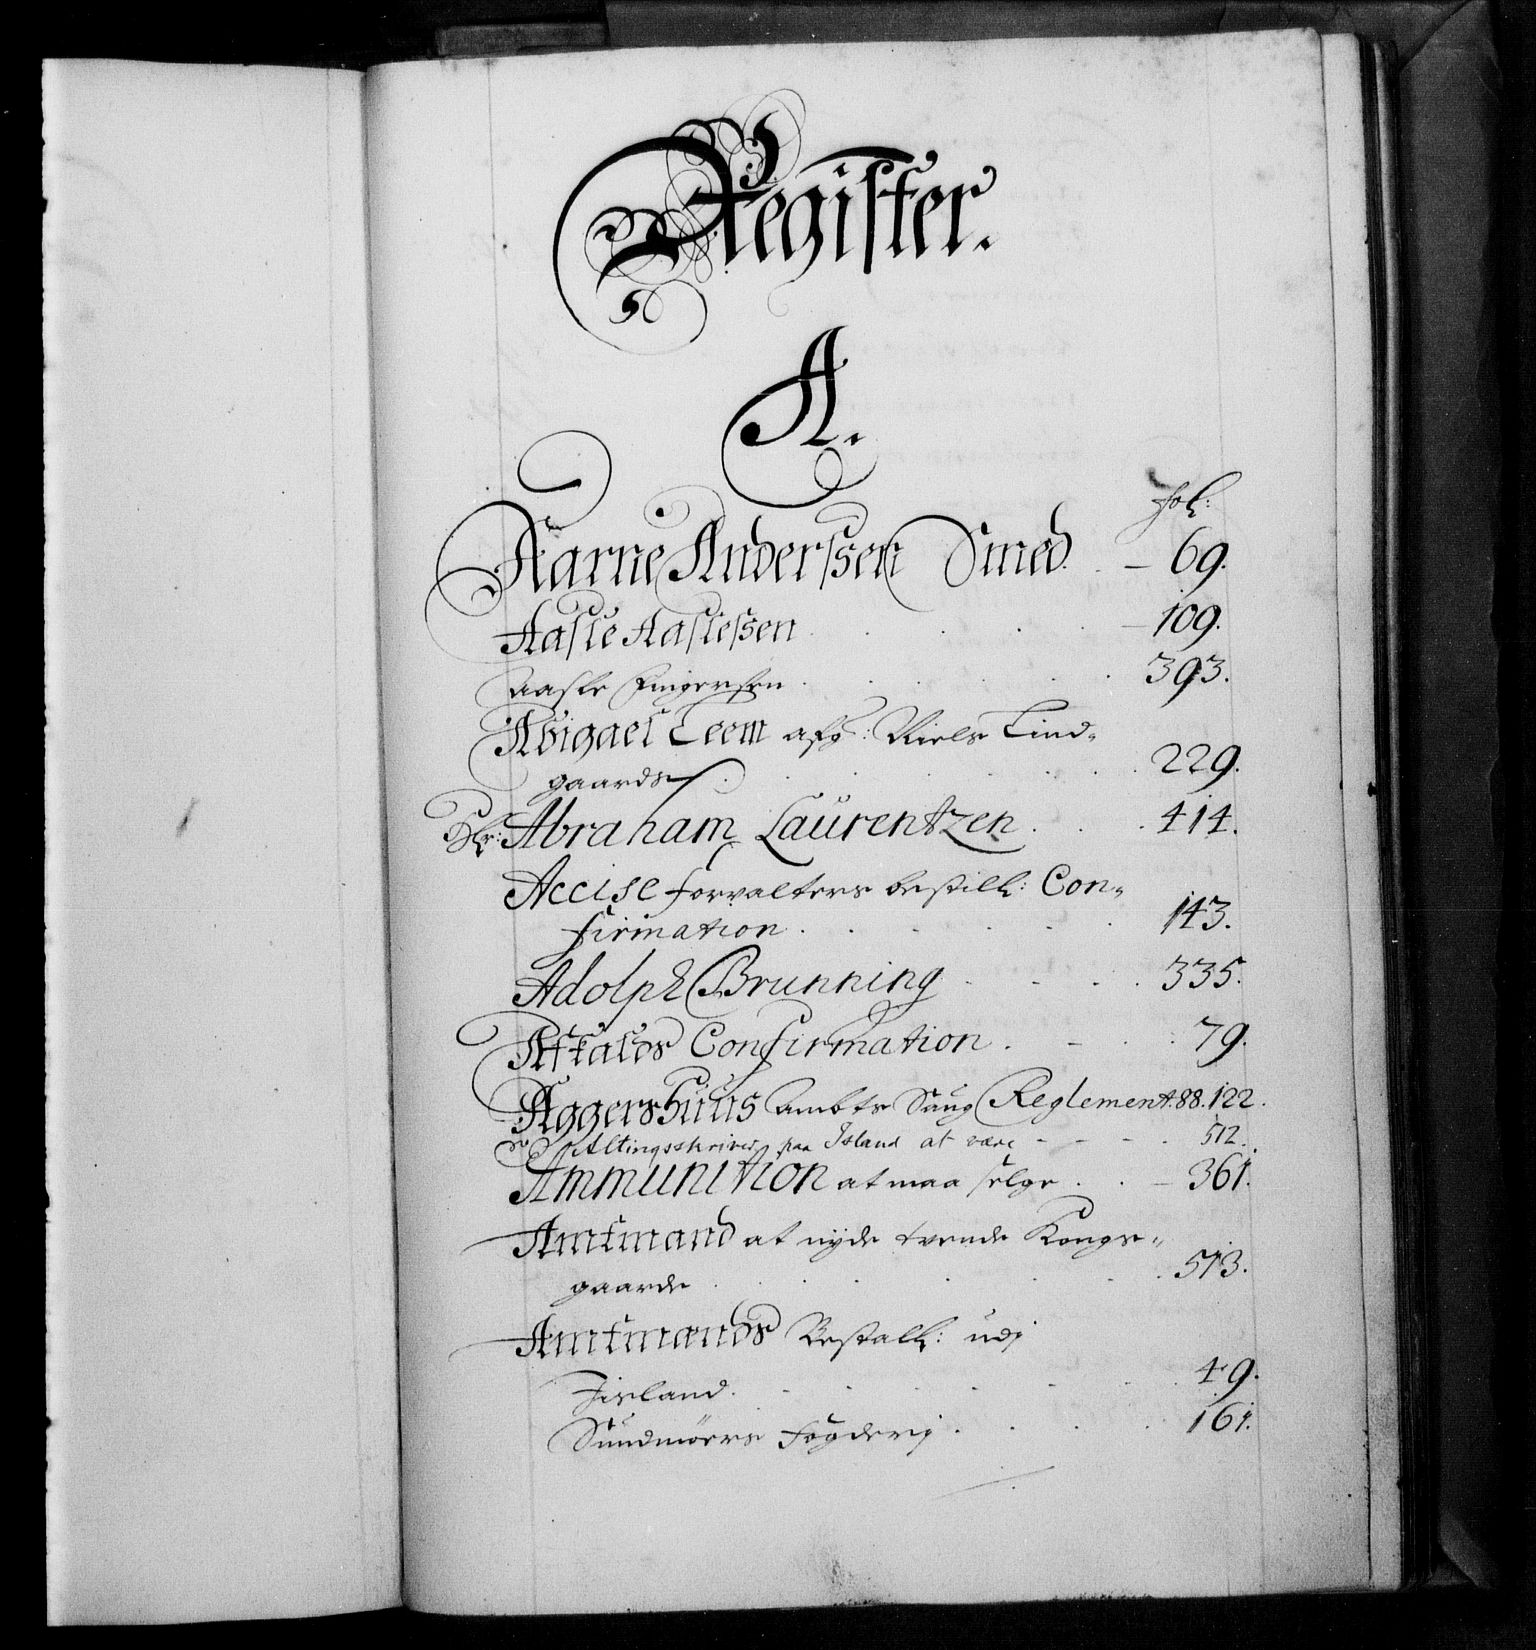 Register.
A.
fol:
Aarne Anderssen Smed. – 69.
Aasle Aaslessen . . . . 109.
Aasle Fingersen . . . . 393.
Abigael Leem afg: Niels Lind-
gaards . . . . 229.
Hr: Abraham Laurentzen . . . 414.
Accise forvalters bestill: Con-
firmation . . . . 143.
Adolph Brunning . . . . 335.
Affalds Confirmation . - . : 79.
Aggershuus Ambts Saug Reglement. 88. 122.
Altingsskriver paa Island at være - - - . 512.
Ammunition at maa selge . . – 361.
Amtmand at nyde tvende Kongs-
gaarde . . . . 513.
Amtmands Bestall: udj
Iisland . - . . . 49.
Sundmörs Fogderij . . . . 161.